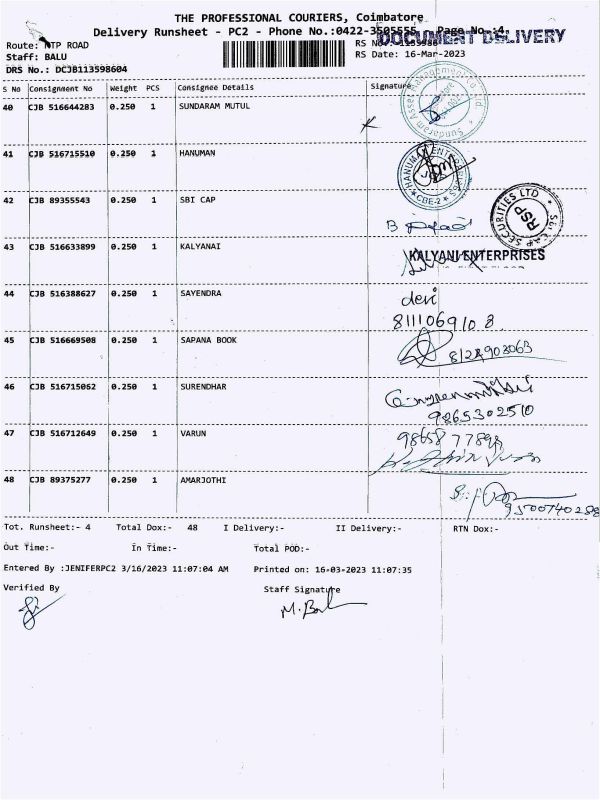 THE PROFESSIONAL COURIERS, Coimbatore
Delivery Runsheet - PC2 - Phone No.:0422-3505555 Page No.:4
DOCUMENT DELIVERY
Route: NTP ROAD
Staff: BALU
RS Date: 16-Mar-2023
DRS No.: DCJB113598604
S No Consignment No Weight PCS Consignee Details Signature
40 CJB 516644283 0.250 1 SUNDARAM MUTUL
41 CJB 516715510 0.250 1 HANUMAN
42 CJB 89355543 0.250 1 SBI CAP
SBI CAP SECURITIES LTD
RSP
43 CJB 516633899 0.250 1 KALYANAI
KALYANI ENTERPRISES
44 CJB 516388627 0.250 1 SAYENDRA
devi
8111069108
45 CJB 516669508 0.250 1 SAPANA BOOK
8128903063
46 CJB 516715062 0.250 1 SURENDHAR
9865302510
47 CJB 516712649 0.250 1 VARUN
48 CJB 89375277 0.250 1 AMARJOTHI
9500740288
Tot. Runsheet:- 4 Total Dox:- 48 I Delivery:- II Delivery:- RTN Dox:-
Out Time:- In Time:- Total POD:-
Entered By :JENIFERPC2 3/16/2023 11:07:04 AM Printed on: 16-03-2023 11:07:35
Verified By Staff Signature